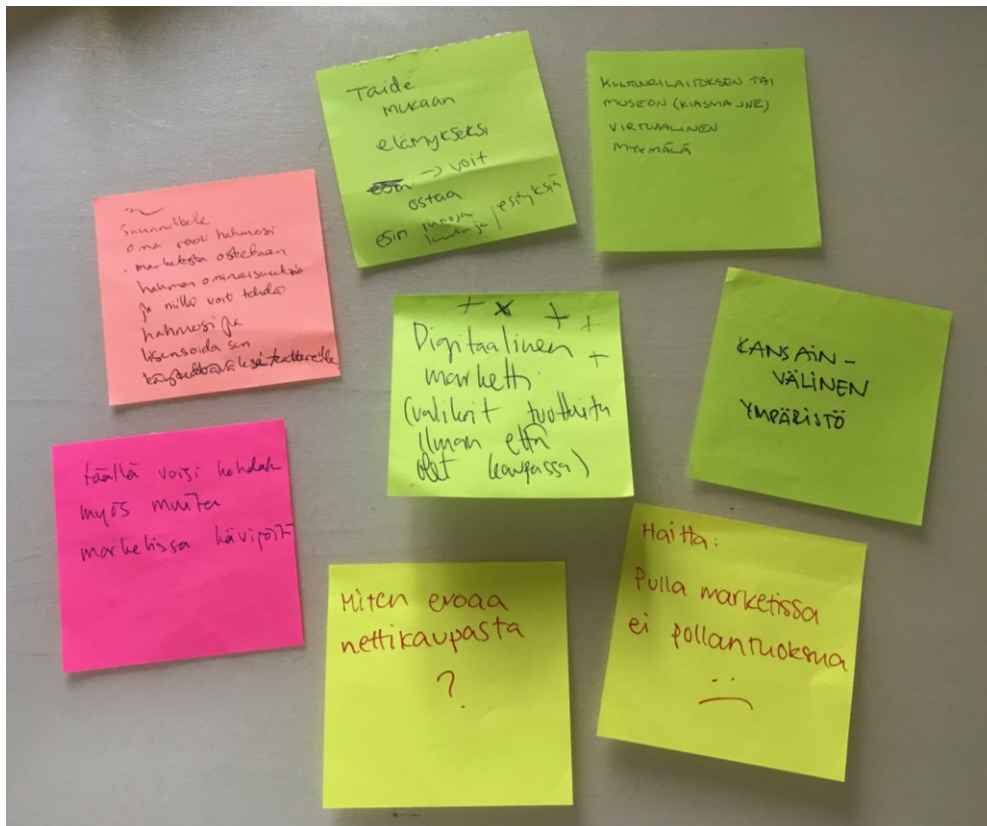 Taide
mukaan
elämykseksi
→ voit
ostaa
esim runoja / esityksiä
lauluja
KULTTUURILAITOKSEN TAI
MUSEON (KIASMA JNE)
VIRTUAALINEN
MYYMÄLÄ
Suunnittele
oma rooli hahmosi
marketista ostetaan
hahmon ominaisuuksia
ja millä voit tehdä
hahmosi ja
lisensoida sen
teattereille
+ x + +
Digitaalinen +
marketti
(valikoit tuotteita
ilman että
olet kaupassa)
KANSAIN-
VÄLINEN
YMPÄRISTÖ
täällä voisi kohdata
myös muita
marketissa kävijöitä
Miten eroaa
nettikaupasta
?
Haitta:
Pulla marketissa
ei pullantuoksua